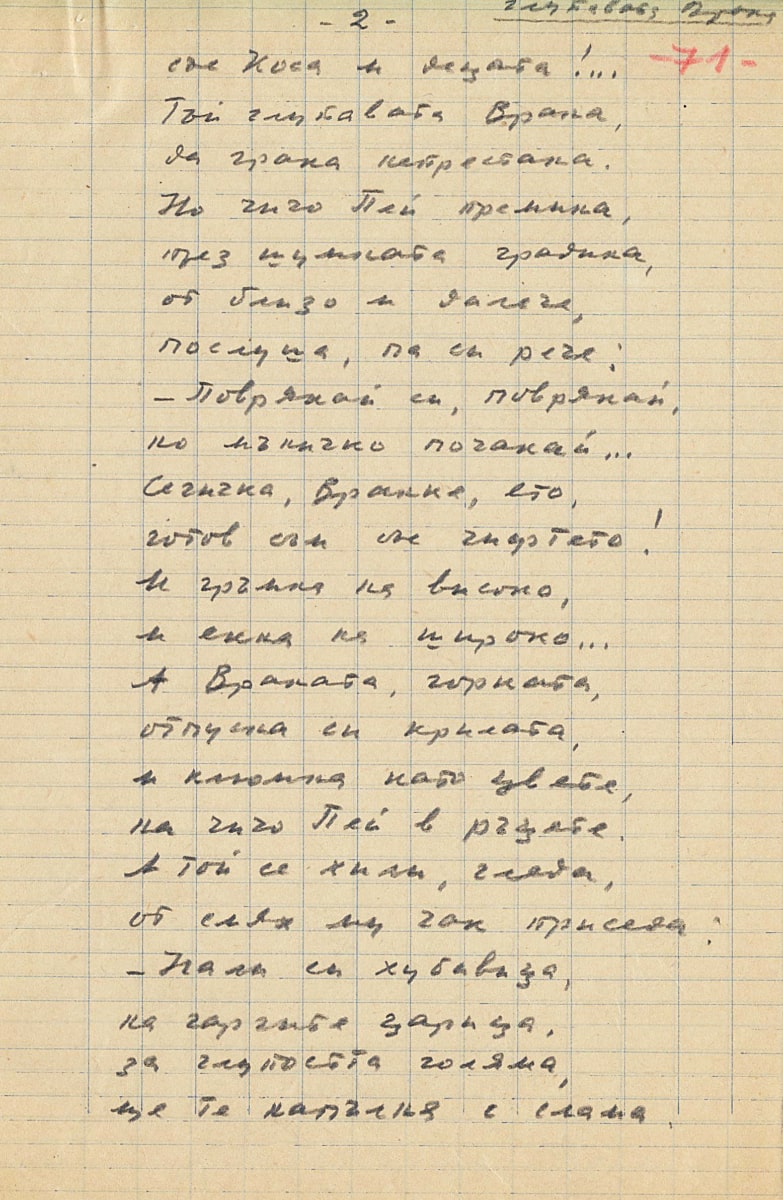 - 2 -
глупавата Врана
-71-
със Коса и дещата!...
Той глупавата Врана,
да грака непрестана.
Но чичо Пей премина,
през шумната градина,
от близо и далече,
послуша, па си рече:
– Поврякай си, поврякай,
но мъничко почакай...
Сегичка, Вранке, ето,
готов съм със чифтето!
И гръмна на високо,
и екна на широко...
А Враната, горката,
отпусна си крилата,
и клюмна като цвете,
на чичо Пей в ръцете.
А той се хили, гледа,
от смях му чак приседа:
– Нали си хубавица,
на гаргите царица,
за глупостта голяма,
ще те напълня с слама